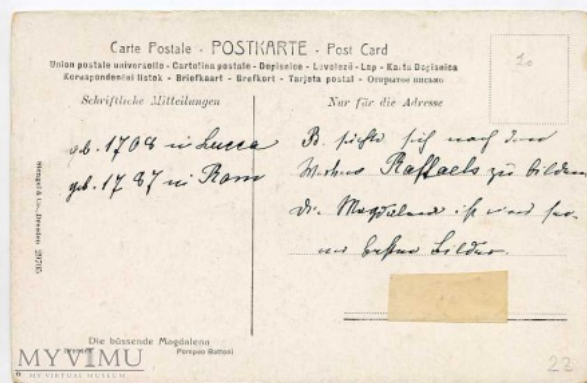 Carte Postale - POSTKARTE - Post Card
Union postale universelle - Cartolina postale - Dopisnice - Levelező-Lap - Karta Dopisnica
Korespondenční lístek - Briefkaart - Brefkort - Tarjeta postal - Открытое письмо
20
Schriftliche Mitteilungen
Nur für die Adresse
geb. 1708 in Lucca
gest. 1787 in Rom
B. suchte sich nach den
Werken Raffaels zu bilden
Die Magdalena ist eines sei-
ner besten Bilder.
Stengel & Co., Dresden 29795
Die büssende Magdalena
Dresden
Pompeo Battoni
MYVIMU
MY VIRTUAL MUSEUM
22